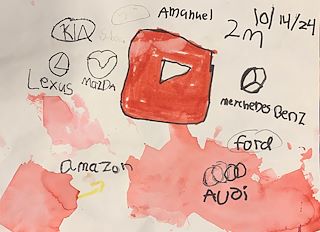 Amanuel
10/14/24
2m
KIA
Lexus
mazDA
merchedes Benz
ford
amazon
AUDi